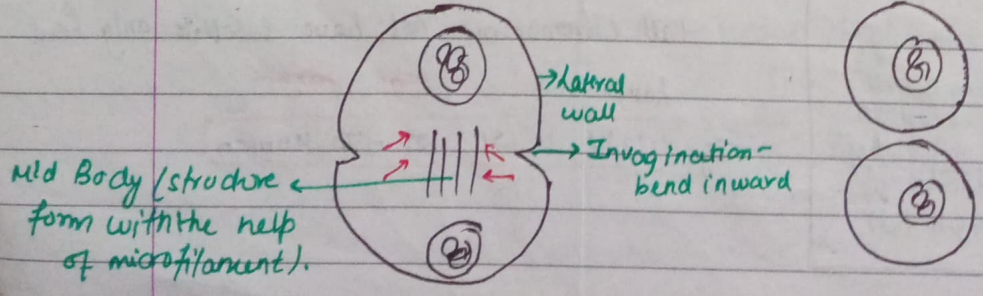 Lateral
wall
Invagination-
bend inward
Mid Body (structure
form with the help
of microfilament).